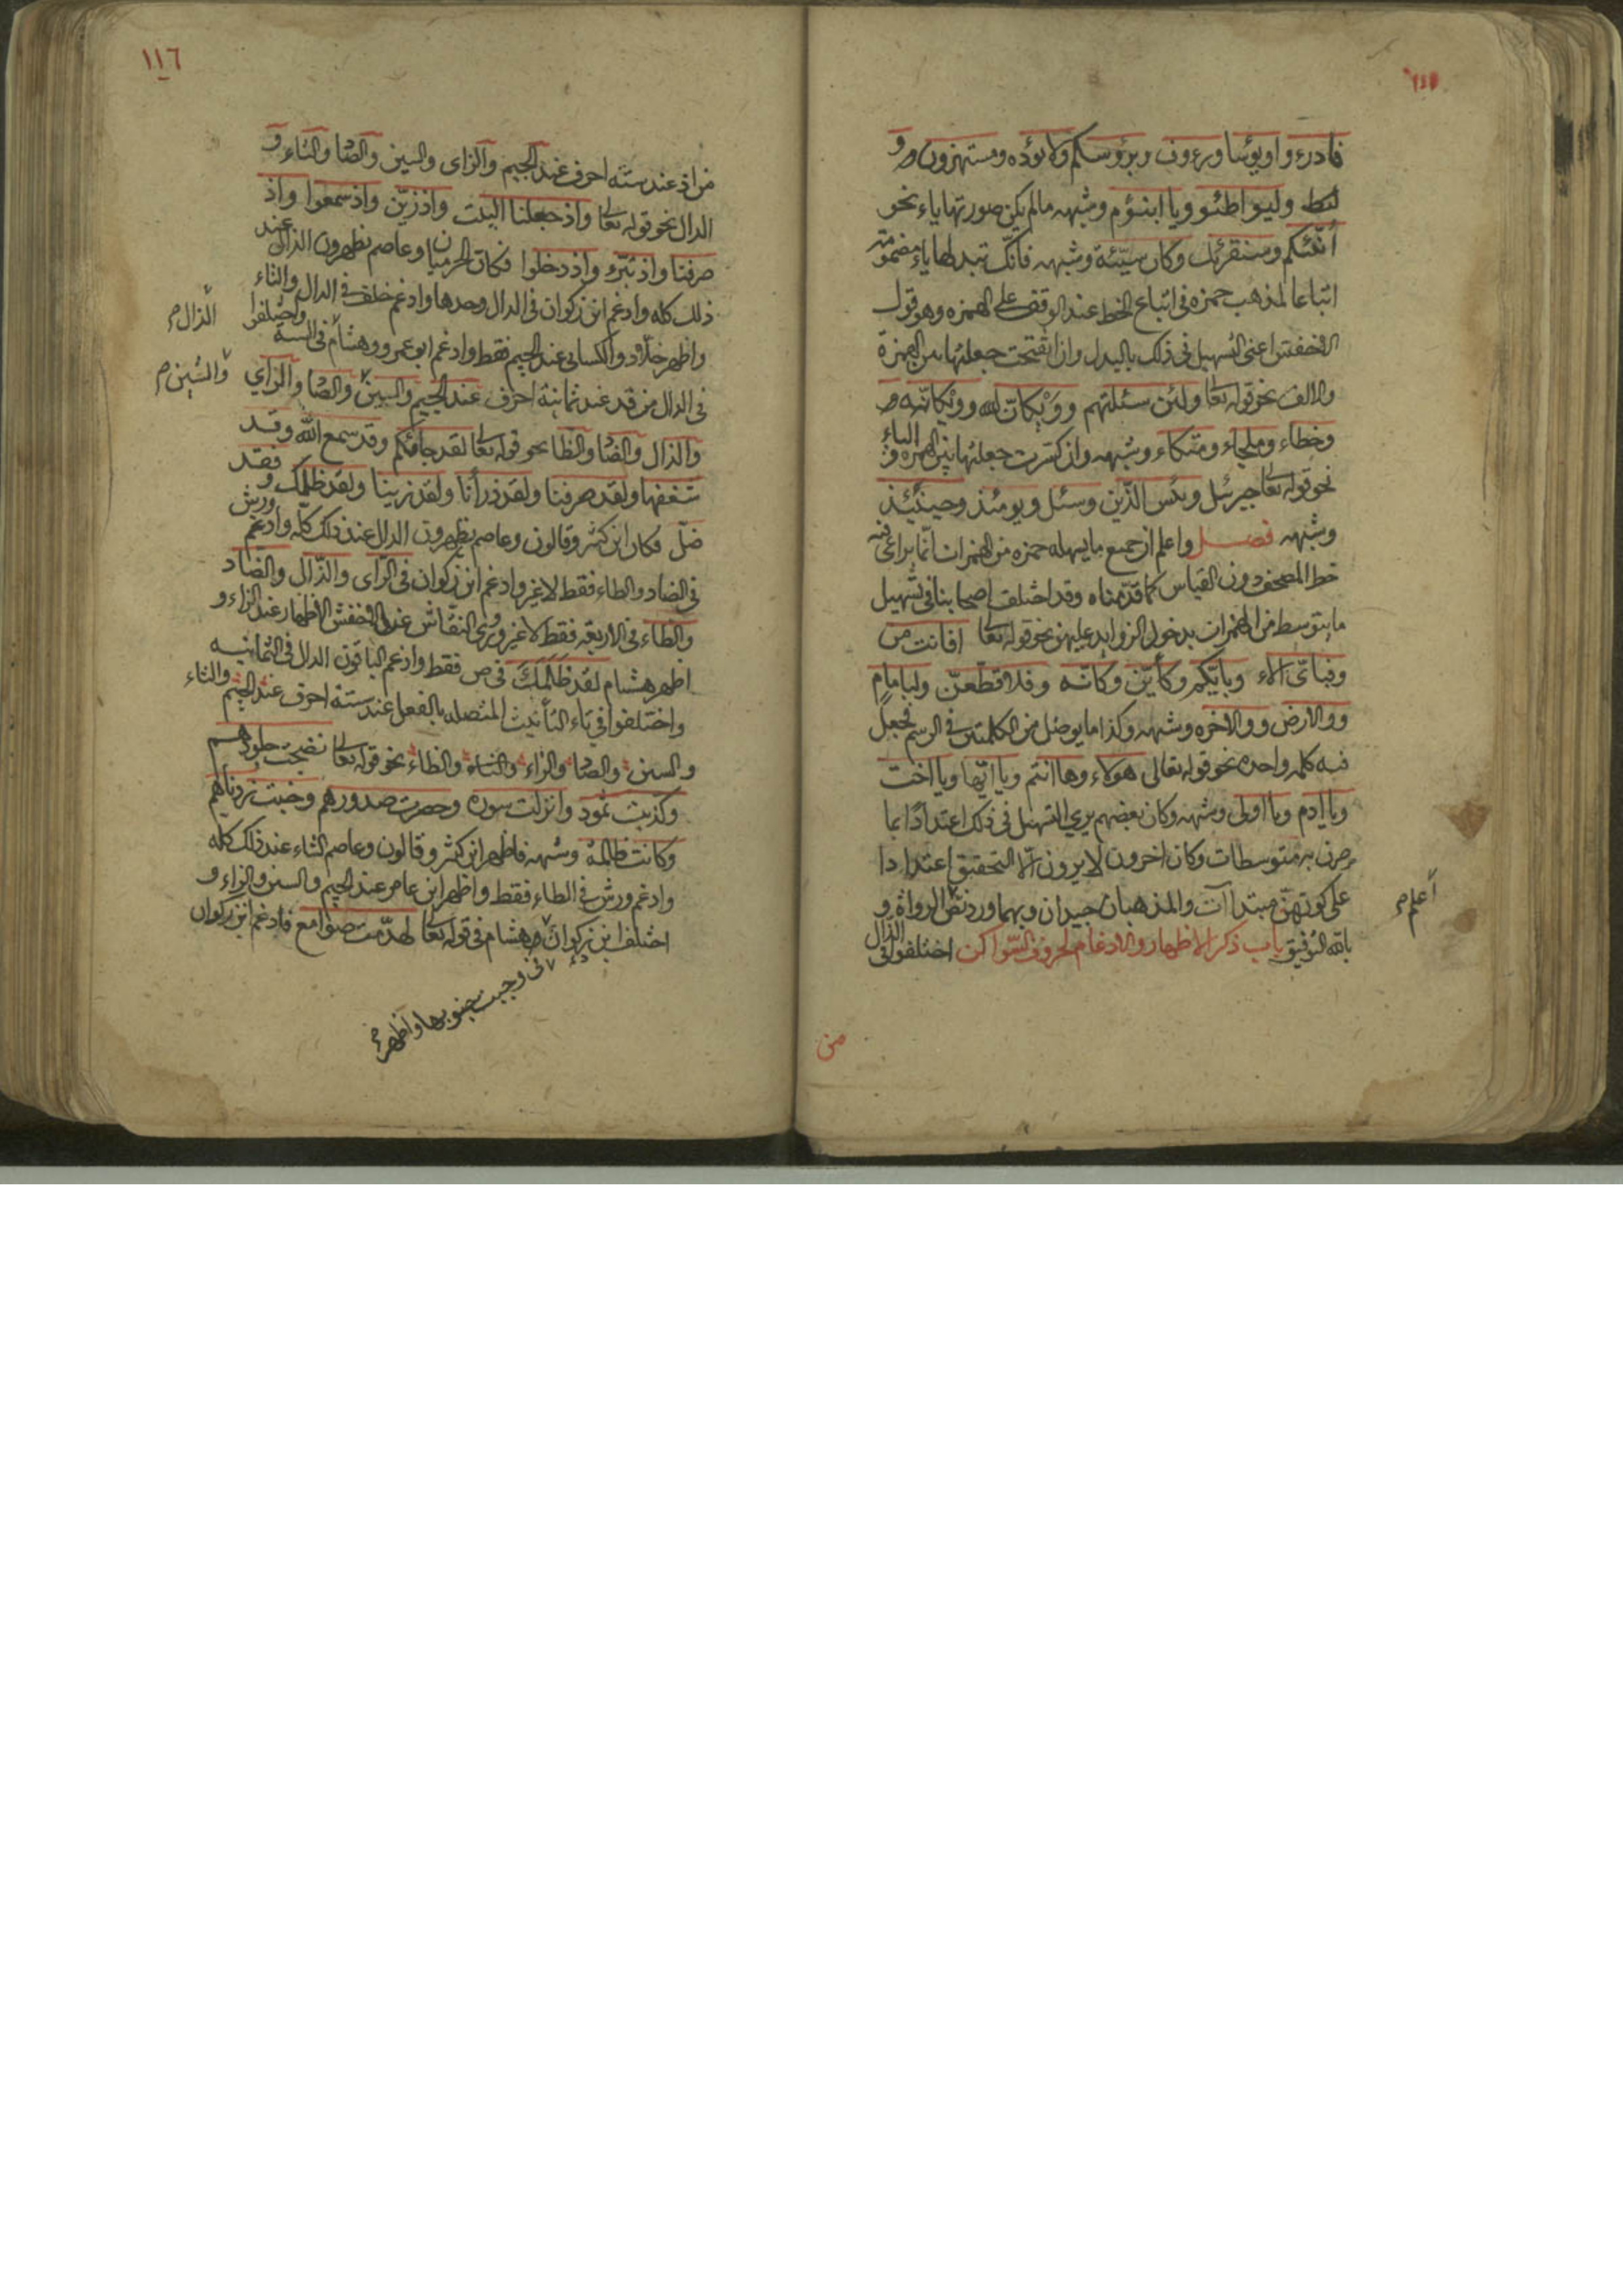 ١١٥
فادرءوا ويؤسا ورءوف وبرؤسكم ولا يؤده ومستهزون و
ليواطئوا ويا ابنؤم وشبهه مالم يكن صورتها ياء نحو
أنبئكم وسنقرئك وكان سيئه وشبهه فانك تبدلها ياء مضمومة
اتباعا لمذهب حمزه فى اتباع الخط عند الوقف على الهمزه وهو قول
الاخفش اعنى التسهيل فى ذلك بالبدل واذا انفتحت جعلتها بين الهمزة
والالف نحو قوله تعا ولئن سئلتهم وويكان الله وويكانه
وخطاء وملجاء ومتكاء وشبهه واذ كسرت جعلتها بين الهمزه والياء
نحو قوله تعا جبرئل وبئس الذين وسئل ويومئذ وحينئذ
وشبهه فصل واعلم ان جميع ما يسهله حمزه من الهمزات انما يراعى فيه
خط المصحف دون القياس كما قدمناه وقد اختلف اصحابنا فى تسهيل
ما يتوسط من الهمزات بدخول الزوايد عليهن نحو قوله تعا افانت
وفباى الاء وبايكم وكأين وكانه وفلاقطعن ولبامام
ووالارض ووالاخره وشبهه وكذا ما يوصل من الكلمتين فى الرسم فجعل
فيه كلمه واحده نحو قوله تعالى هولاء وها انتم ويا ايها ويا اخت
ويا ادم ويا اولى وشبهه وكان بعضهم يرى التسهيل فى ذلك اعتدادا بما
صرن به متوسطات وكان اخرون لا يرون الا التحقيق اعتدادا
على كونهن مبتدآت والمذهبان جيدان وبهما ورد نص الرواة و
اعلم م
بالله التوفيق باب ذكر الاظهار والادغام لحروف السواكن اختلفوا فى الذال
من
١١٦
من اذ عند سته احرف عند الجيم والزاى والسين والصا والتاء و
الدال نحو قوله تعا واذ جعلنا البيت واذ زين واذ سمعوا واذ
صرفنا واذ تبرء واذ دخلوا فكان الحرميان وعاصم يظهرون الذال عند
ذلك كله وادغم ابن ذكوان فى الدال وحدها وادغم خلف فى الدال والتاء
واظهر خلاد والكسائى عند الجيم فقط وادغم ابو عمرو وهشام فى السته واختلفوا
الذال م
فى الدال من قد عند ثمانية احرف عند الجيم والسين والصا والزاي
والشين م
والذال والضا والظا نحو قوله تعا لقد جاءكم وقد سمع الله وقد
شغفها ولقد صرفنا ولقد ذرأنا ولقد زينا ولقد ظلمك وفقد
ضل فكان ابن كثير وقالون وعاصم يظهرون الدال عند ذلك كله وادغم ورش
فى الضاد والظاء فقط لا غير وادغم ابن ذكوان فى الزاى والذال والضاد
والظاء فى الاربعه فقط لا غير وروى النقاش عن الاخفش الاظهار عند الزاء و
اظهر هشام لقد ظلمك فى ص فقط وادغم الباقون الدال فى الثمانيه
واختلفوا فى تاء التأنيث المتصله بالفعل عند ستة احرف عند الجيم والثاء
والسين والصا والزاء والظاء نحو قوله تعا نضجت جلودهم
وكذبت ثمود وانزلت سوره وحصرت صدورهم وخبت زدناهم
وكانت ظالمة وشبهه فاظهر ابن كثير وقالون وعاصم التاء عند ذلك كله
وادغم ورش فى الظاء فقط واظهر ابن عامر عند الجيم والسين والزاء و
اختلف ابن ذكوان وهشام فى قوله تعا لهدمت صوامع فادغم ابن ذكوان
فى وجبت جنوبها واظهر م